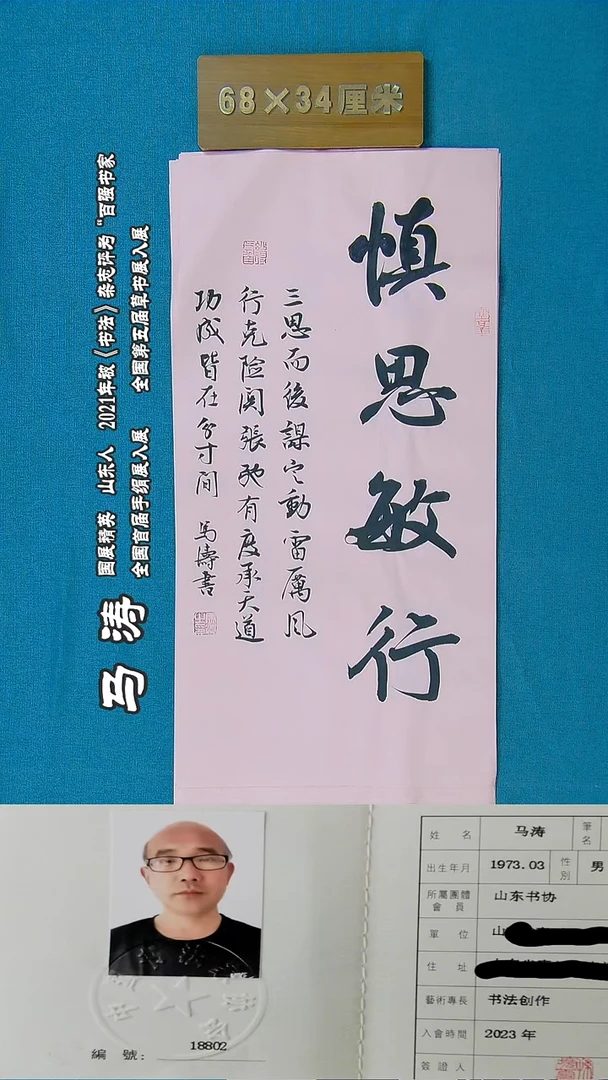 68×34厘米
慎思敏行
三思而後謀定動雷厲風
行克险関張弛有度承天道
功成皆在分寸间 馬濤書
马涛
国展精英 山东人 2021年被《书法》杂志评为“百强书家
全国首届手绢展入展 全国第五届草书展入展
姓名 马涛 筆名
出生年月 1973.03 性別 男
所屬團體會員 山东书协
單位 山
住址
藝術專長 书法创作
入會時間 2023 年
簽證人
編號: 18802